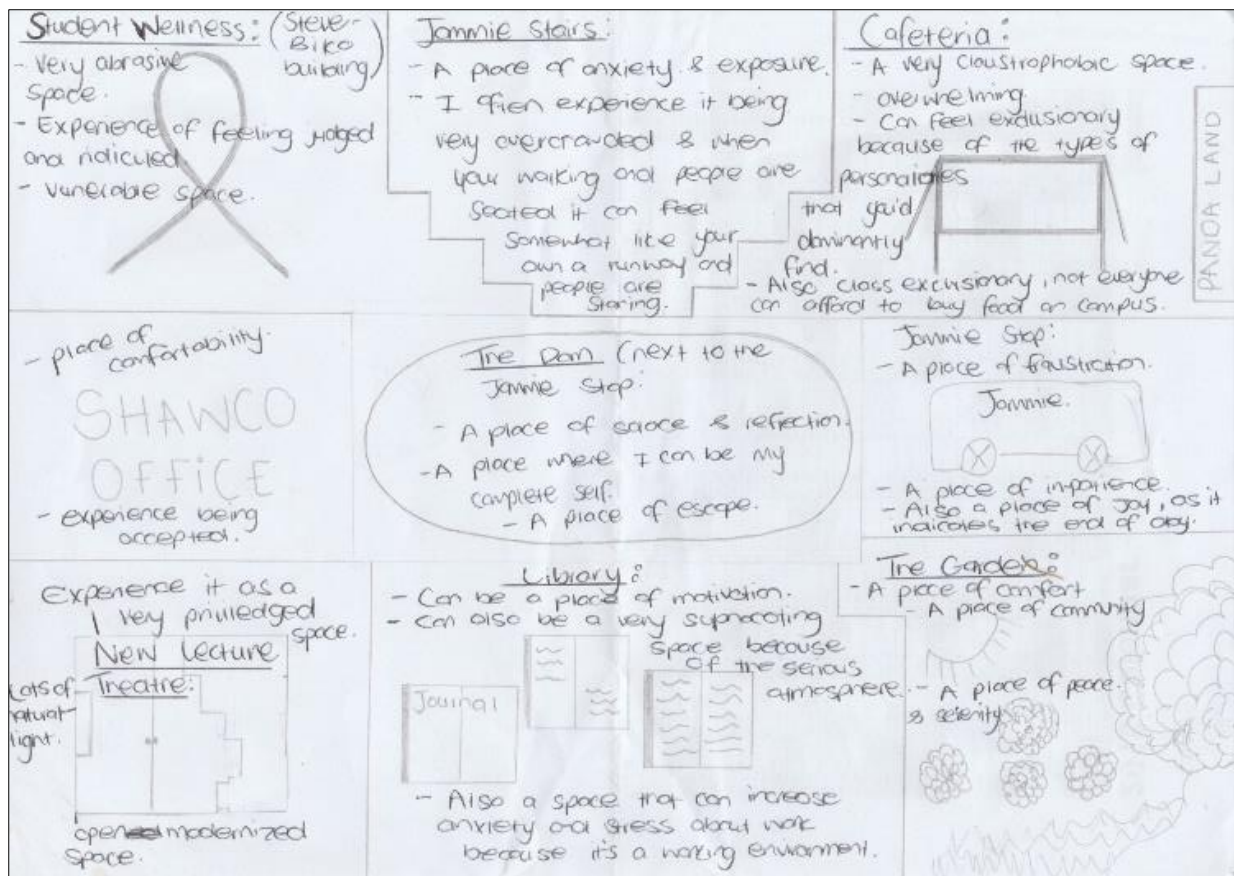 Student Wellness: (Steve-
Biko
building)
- Very abrasive
space.
- Experience of feeling judged
and ridiculed
- vunerable space.
Jammie Stairs:
- A place of anxiety & exposure.
- I often experience it being
very overcrowded & when
your walking and people are
seated it can feel
somewhat like your
own a runway and
people are
staring.
Cafeteria:
- A very claustrophobic space.
- overwhelming
- Can feel exclusionary
because of the types of
personalities
that you'd
dominantly
find.
- Also class exclusionary, not everyone
can afford to buy food on campus.
PANDA LAND
- place of
comfortability.
SHAWCO
OFFICE
- experience being
accepted.
The Dam (next to the
Jammie Stop:
- A place of solace & reflection.
- A place where I can be my
complete self.
- A place of escape.
Jammie Stop:
- A place of fraustration.
Jammie.
- A place of inpatience.
- Also a place of Joy, as it
indicates the end of day.
Experience it as a
very priviledged
space.
New Lecture
Theatre:
Lots of
natural
light.
open modernized
space.
Library:
- Can be a place of motivation.
- Can also be a very suffocating
space because
of the serious
atmosphere.
Journal
- Also a space that can increase
anxiety and stress about work
because it's a working environment.
The Garden:
- A place of comfort
- A place of community
- A place of peace
& serenity